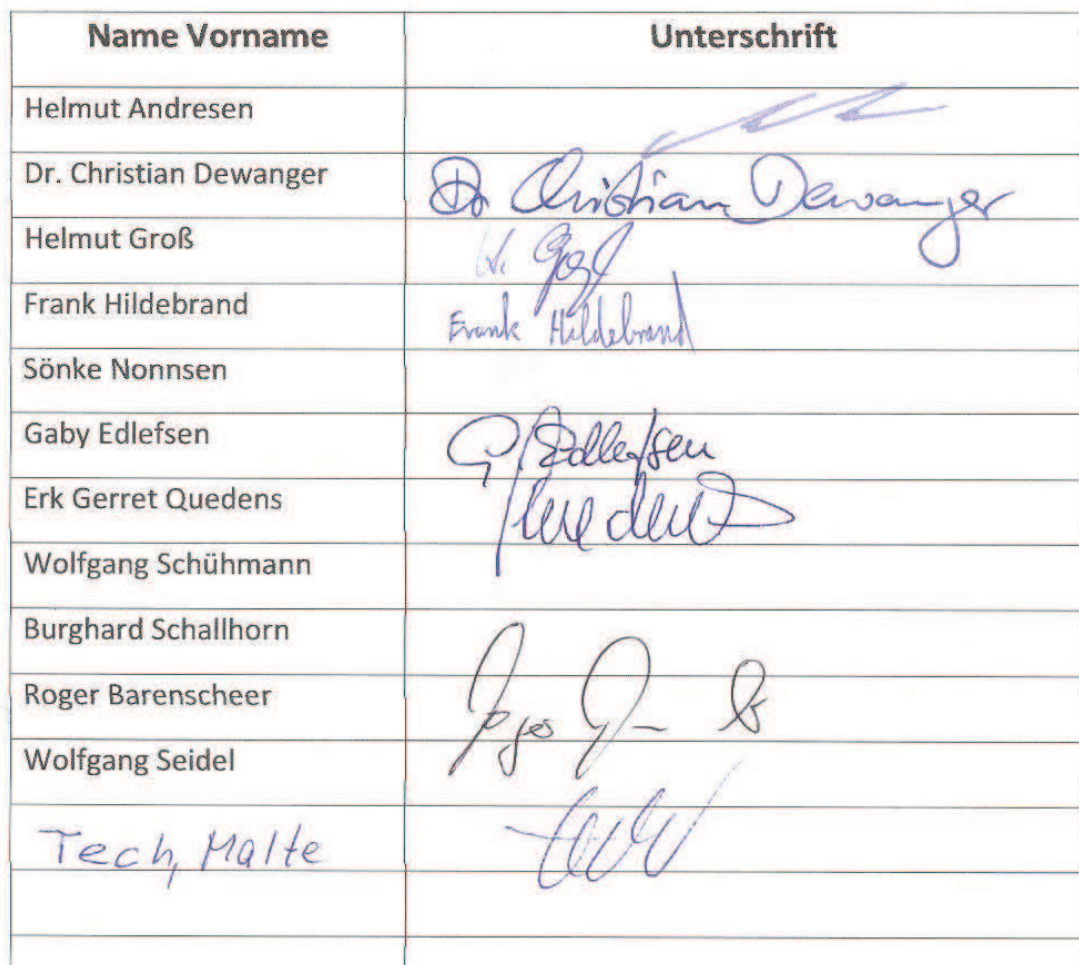 Name Vorname Unterschrift
Helmut Andresen
Dr. Christian Dewanger Dr Christian Dewanger
Helmut Groß H.
Frank Hildebrand Frank Hildebrand
Sönke Nonnsen
Gaby Edlefsen G. Edlefsen
Erk Gerret Quedens Quedens
Wolfgang Schühmann
Burghard Schallhorn
Roger Barenscheer Roger
Wolfgang Seidel
Tech, Malte